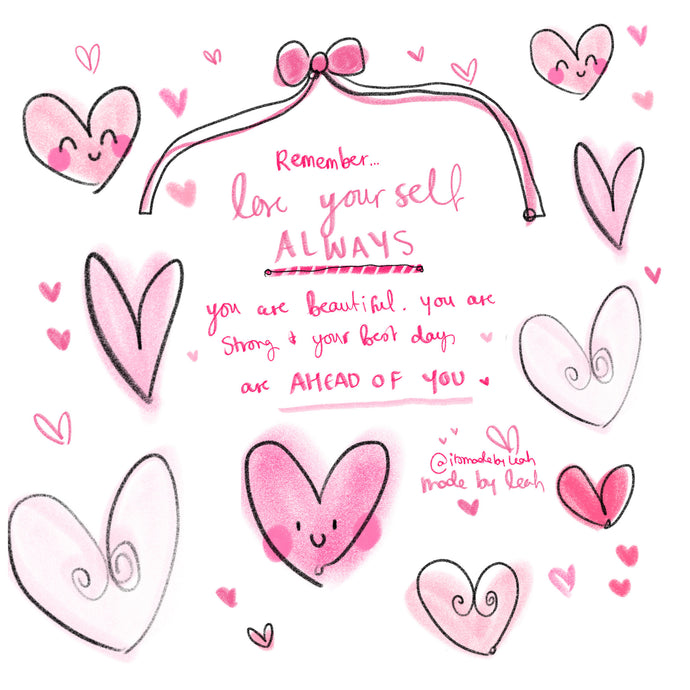 Remember...
love yourself
ALWAYS
you are beautiful. you are
Strong & your best days
are AHEAD OF YOU
@itsmadebyleah
made by leah